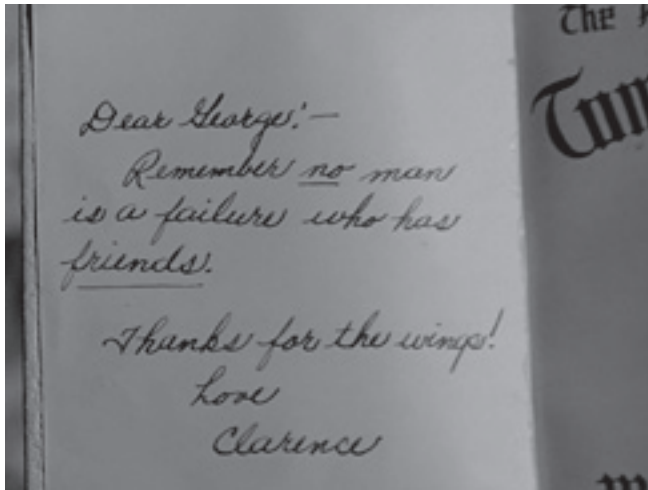 The
Dear George:—
Remember no man
is a failure who has
friends.
Thanks for the wings!
Love
Clarence